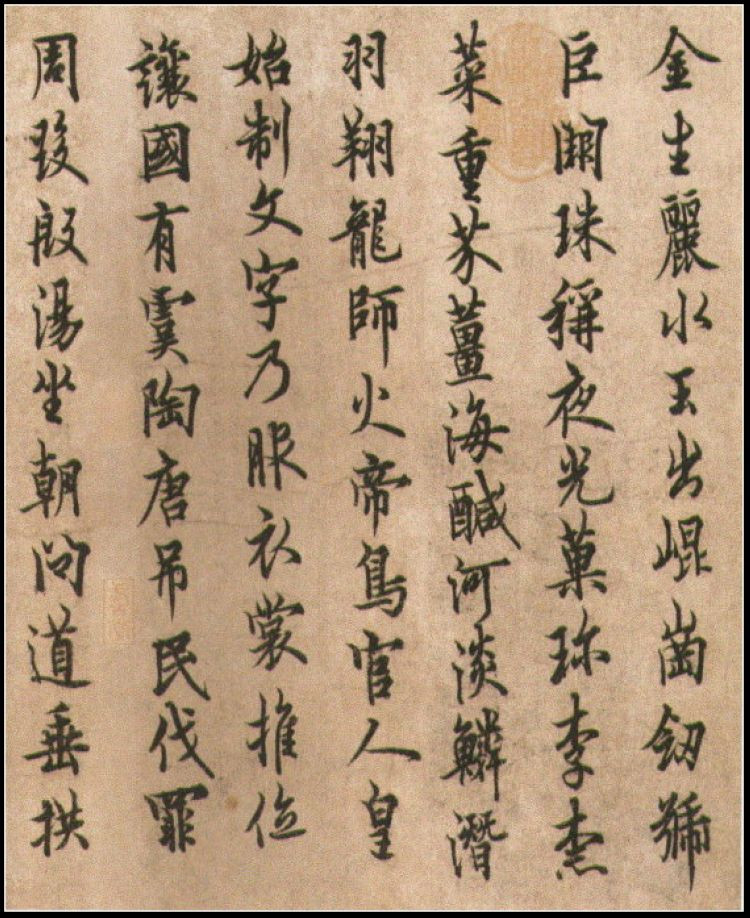 金生麗水玉出崐崗釼號
巨闕珠稱夜光菓珎李柰
菜重芥薑海醎河淡鱗潛
羽翔龍師火帝鳥官人皇
始制文字乃服衣裳推位
讓國有虞陶唐吊民伐罪
周發殷湯坐朝問道垂拱